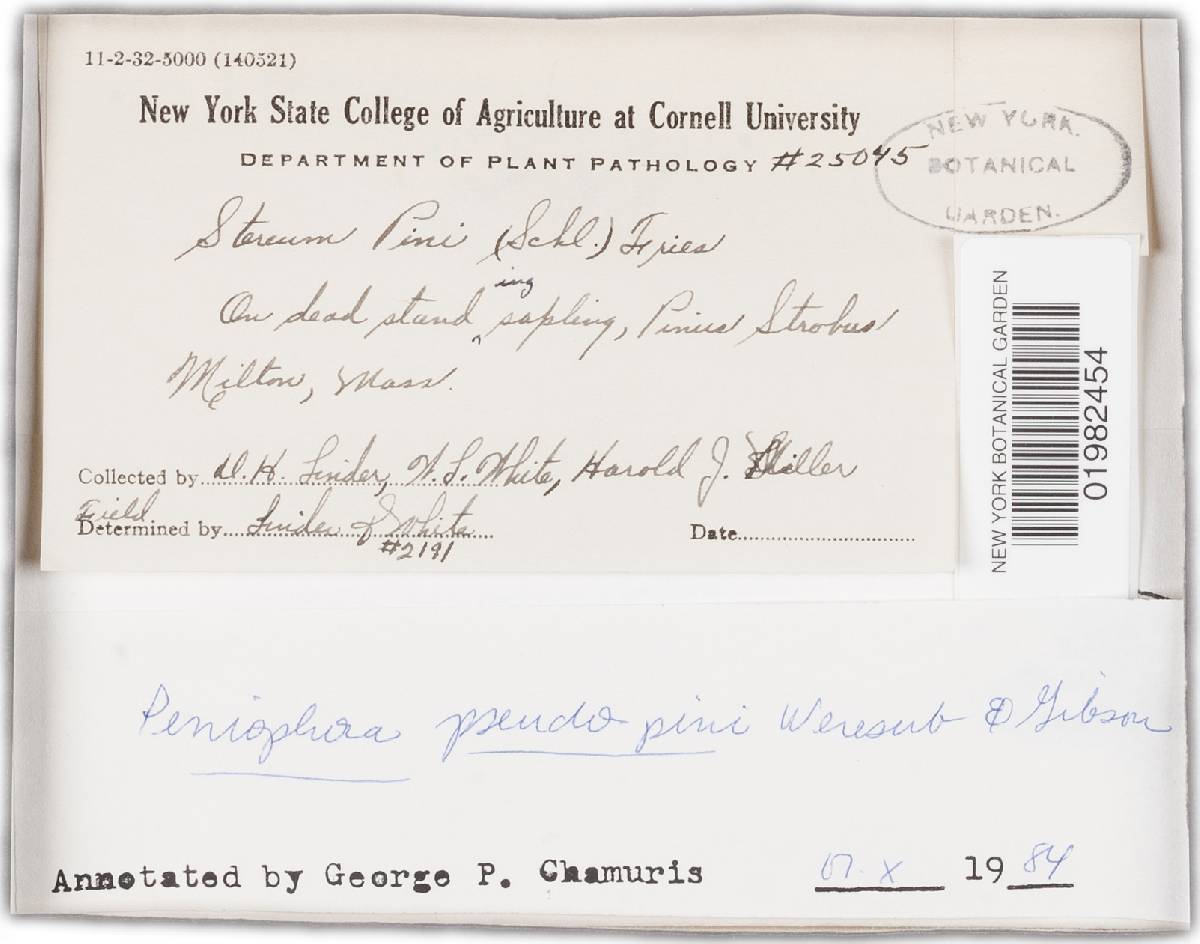 11-2-32-5000 (140521)
New York State College of Agriculture at Cornell University
DEPARTMENT OF PLANT PATHOLOGY #25045
NEW YORK
BOTANICAL
GARDEN.
Stereum Pini (Schl.) Fries
On dead standing sapling, Pinus Strobus
Milton, Mass.
Collected by D. H. Linder, W. L. White, Harold J.
Field
Determined by Linder & White
#2191
Date
NEW YORK BOTANICAL GARDEN
01982454
Peniophora pseudo pini Weresub & Gibson
Annotated by George P. Chamuris X 1984